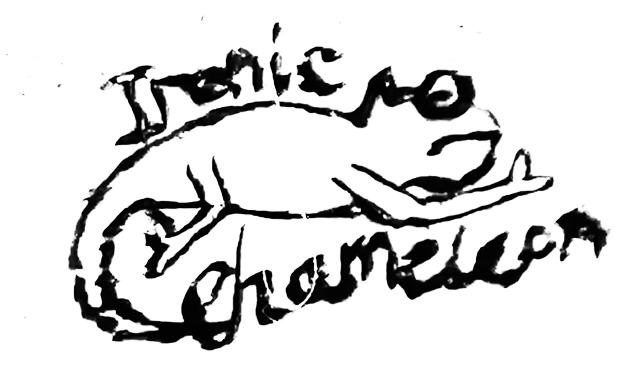 Ironic
Chameleon